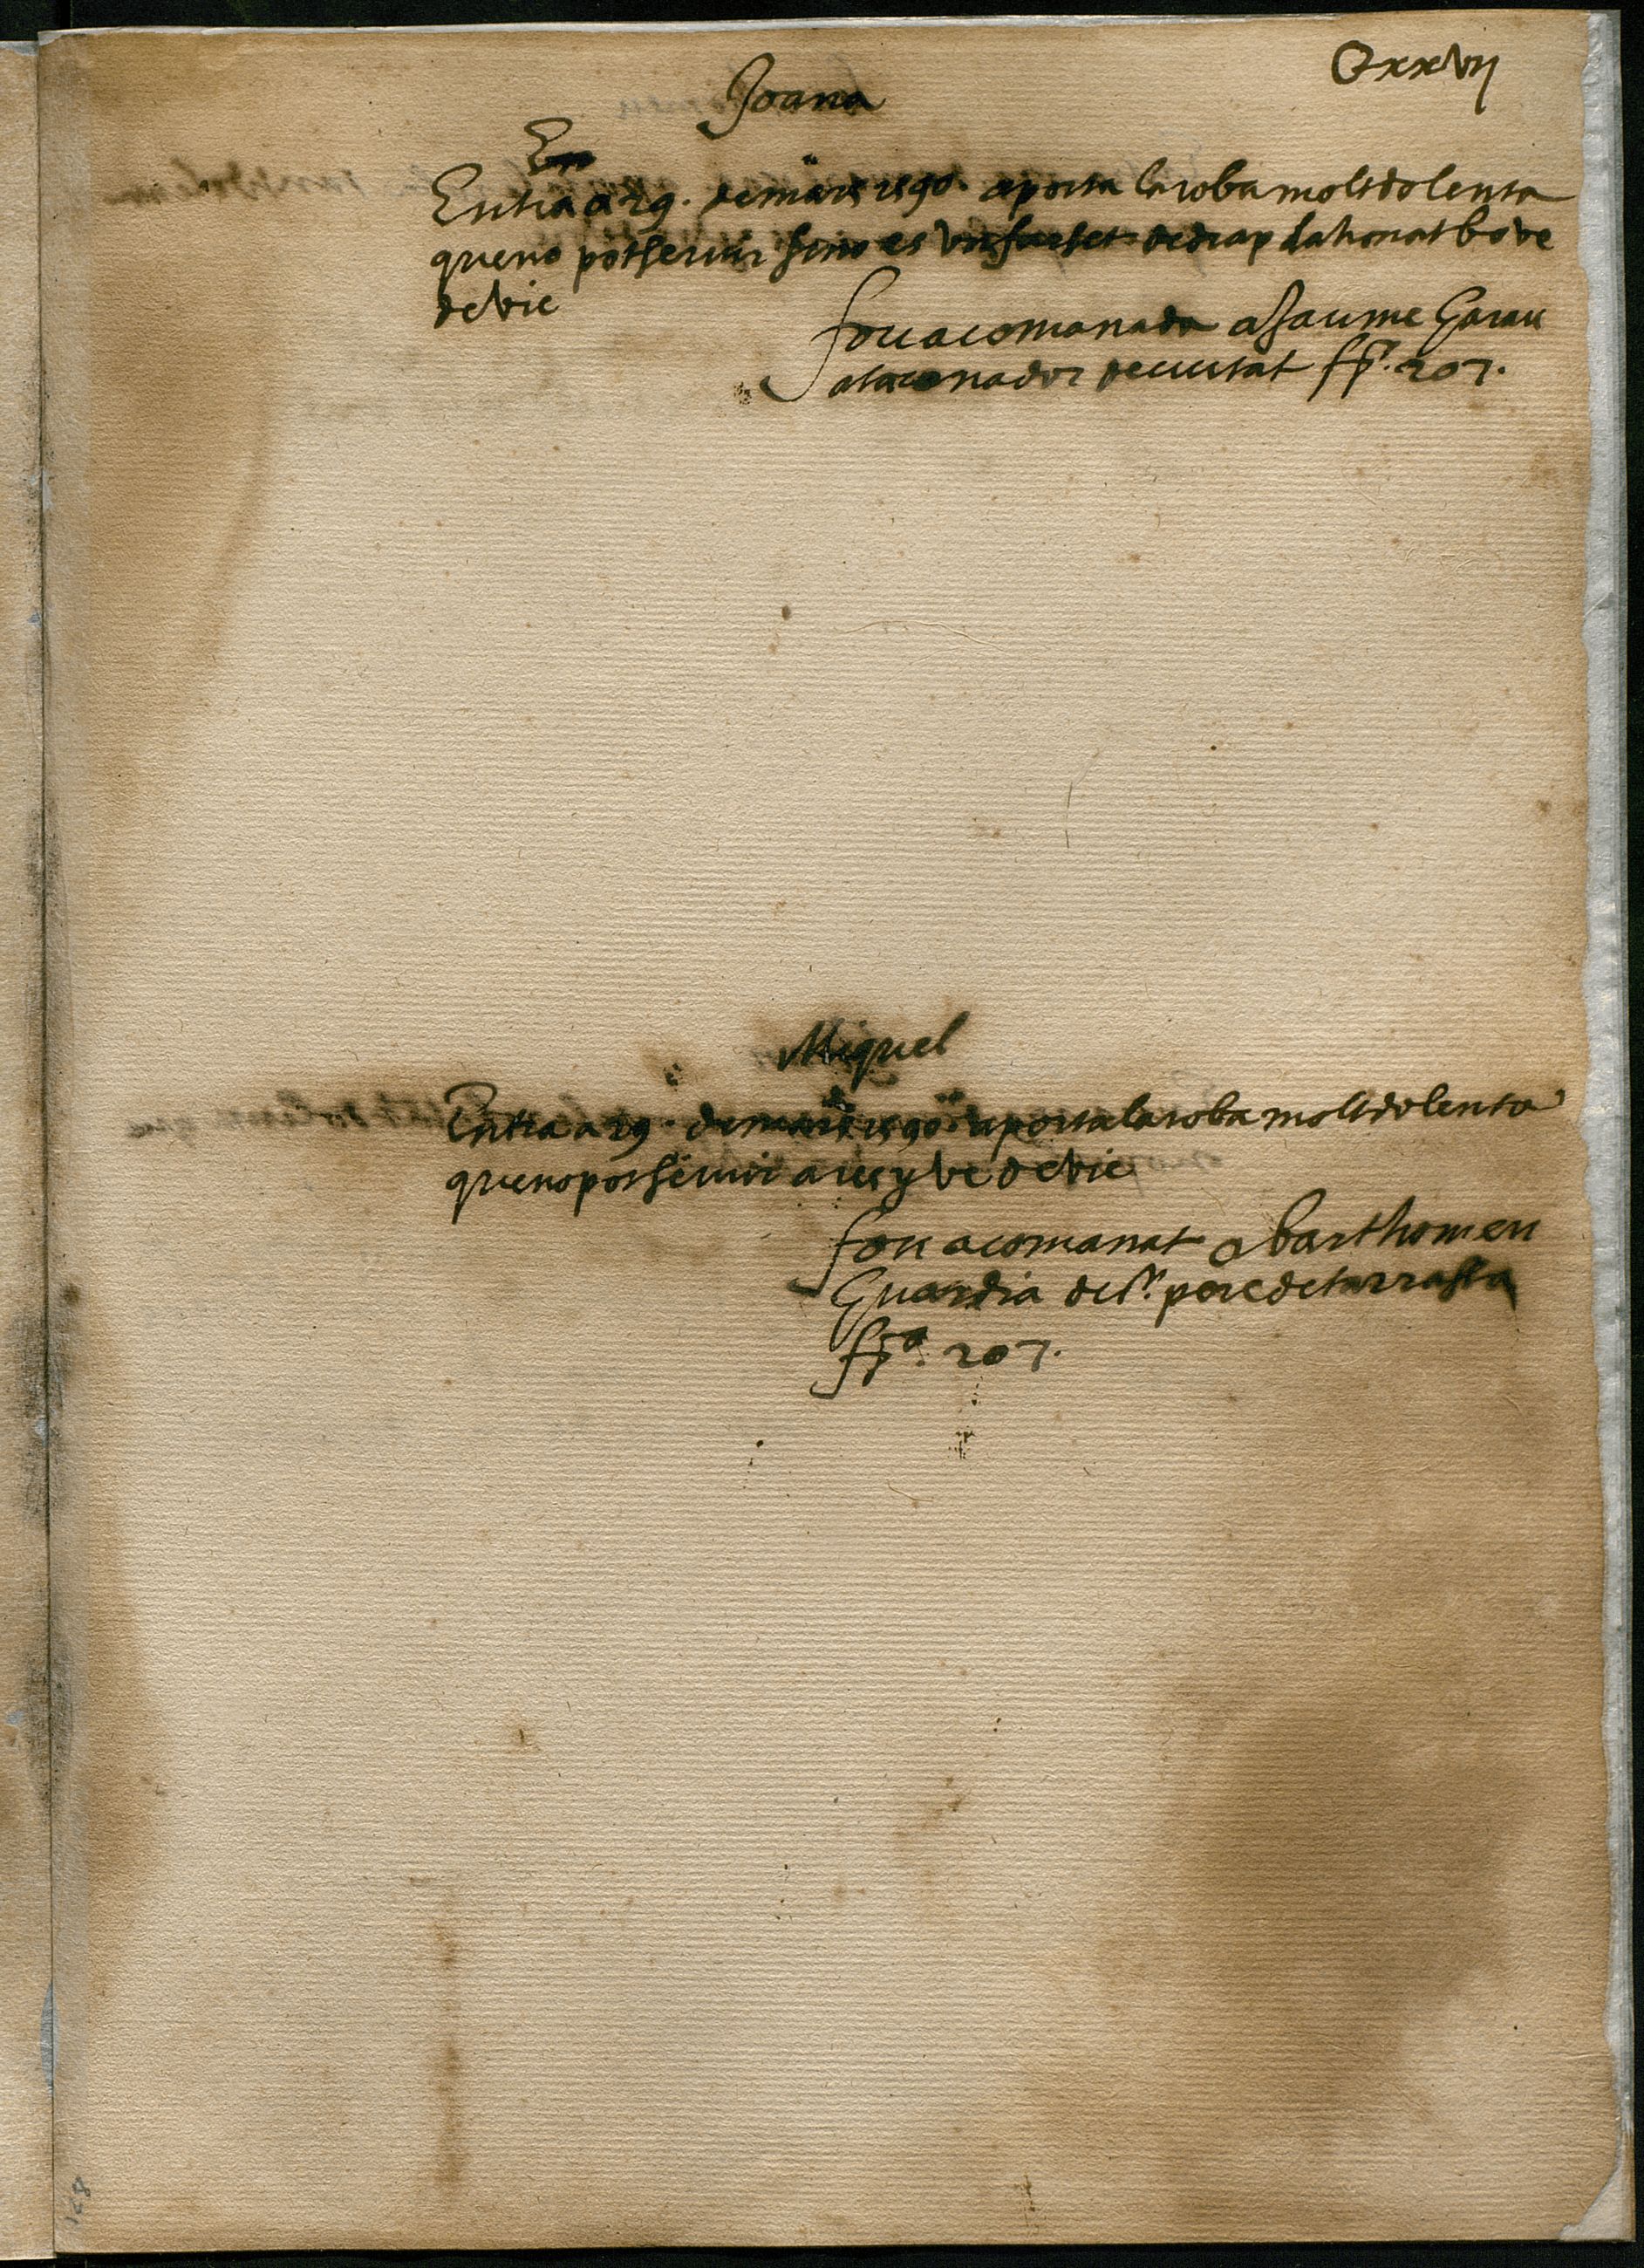 Cxxvij
Joana
En
Entra a 29. de mars 1590. aporta la roba molt dolenta
que no pot servir sino es un farset de drap dahonat bo ve
de vic
fou acomanada a Jaume Garau
ataconador de ciutat ff.º 207.
Miquel
Entra a 29. de mars 1590 aporta la roba molt dolenta
que no pot servir a res y ve de vic
fou acomanat a barthomeu
Guardia de s.t pere de tarrassa
ff.º 207.